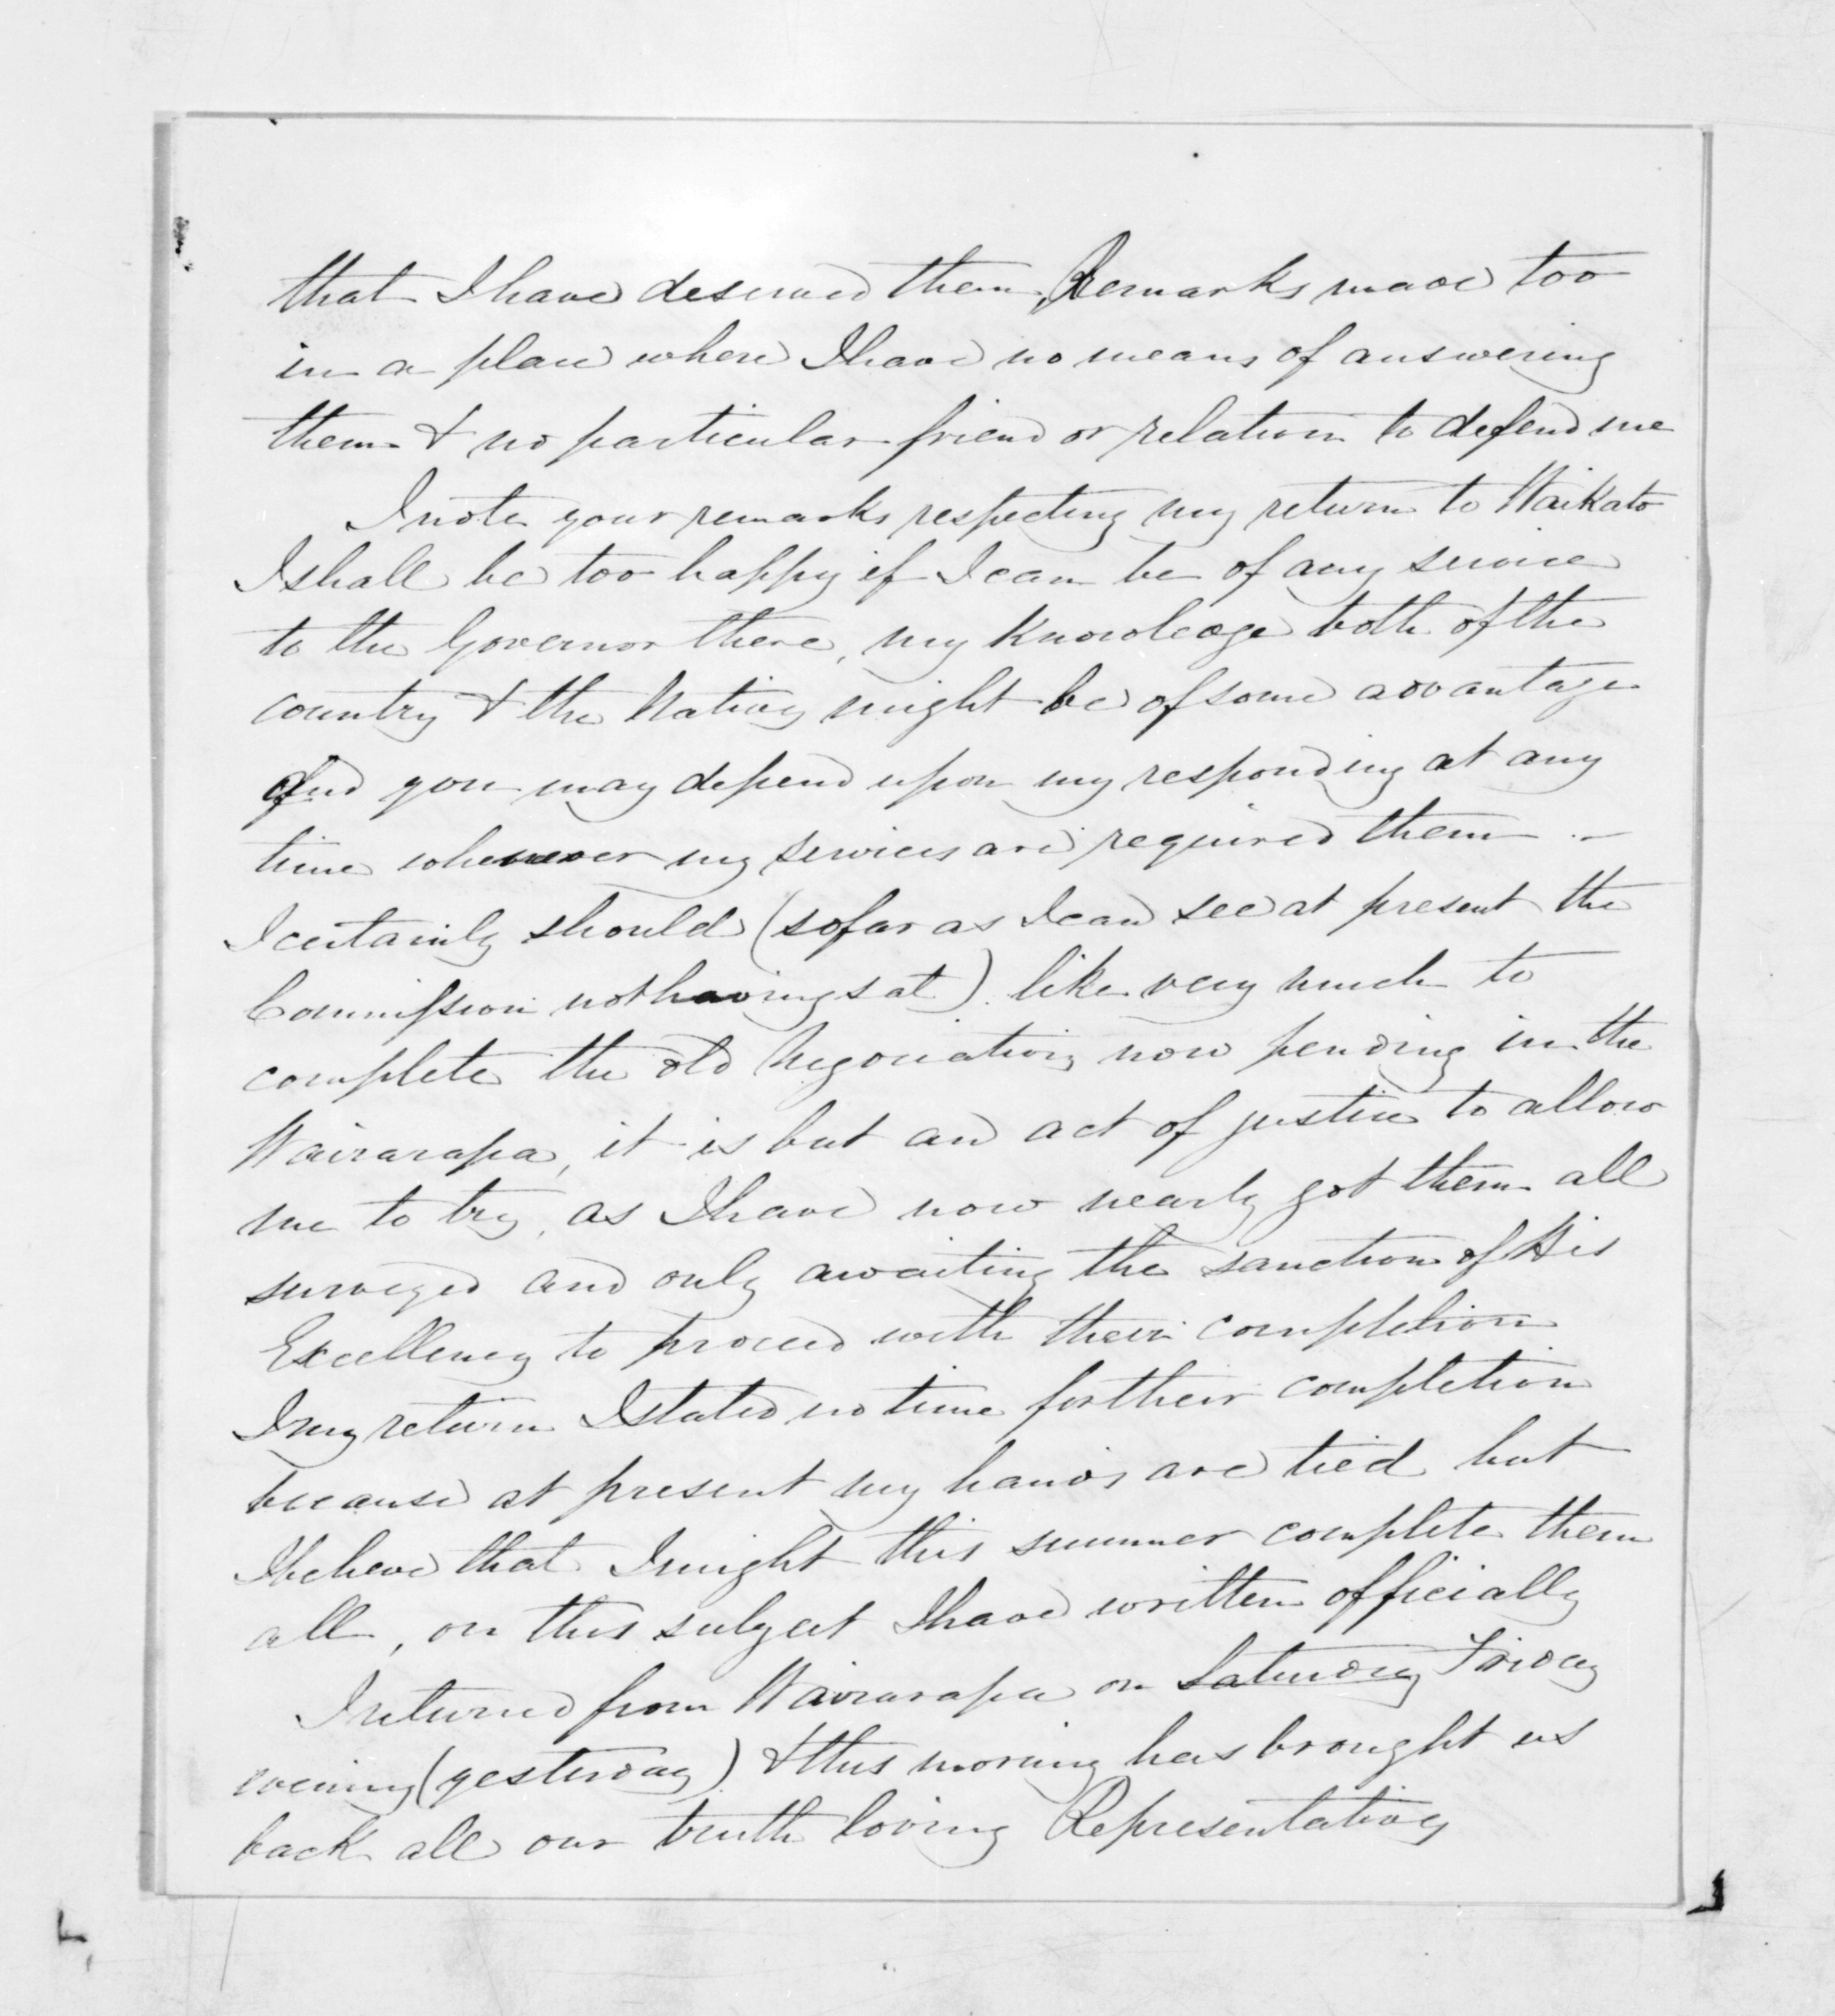 that I have deserved them, Remarks made too
in a place where I have no means of answering
them & no particular friend or relation to defend me
I note your remarks respecting my return to Waikato
I shall be too happy if I can be of any service
to the Governor there, my knowledge both of the
country & the Natives might be of some advantage
And you may depend upon my responding at any
time whenever my services are required them –
I certainly should (so far as I can see at present the
Commission not having sat) like very much to
complete the old negociations now pending in the
Wairarapa, it is but an act of justice to allow
me to try, as I have now nearly got them all
surveyed and only awaiting the sanction of His
Excellency to proceed with their completion
I my return I stated no time for their completion
because at present my hands are tied but
I believe that I might this summer complete them
all, on this subject I have written officially
I returned from Wairarapa on Saturday Friday
evening (yesterday) & this morning has brought us
back all our truth loving Representatives